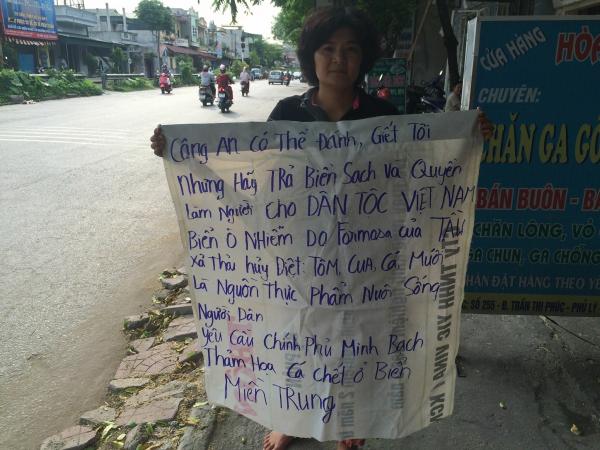 CỬA HÀNG
CHUYÊN:
CHĂN GA
BÁN BUÔN
CHĂN LÔNG, VỎ
GA CHUN, GA CHỐNG
SỐ 255 - Đ. TRẦN THỊ PHÚC - PHỦ LÝ
Công An có Thể Đánh, Giết Tôi
Nhưng Hãy TRả Biển Sạch Và Quyền
Làm Người CHO DÂN TỘC VIỆT NAM
Biển Ô Nhiễm Do Formosa của TÀU
Xả Thải Hủy Diệt: TÔM, CUA, Cá, Muối
Là Nguồn Thực Phẩm Nuôi Sống
Người Dân
yêu Cầu Chính Phủ Minh Bạch
Thảm Họa Cá Chết Ở Biển
Miền Trung